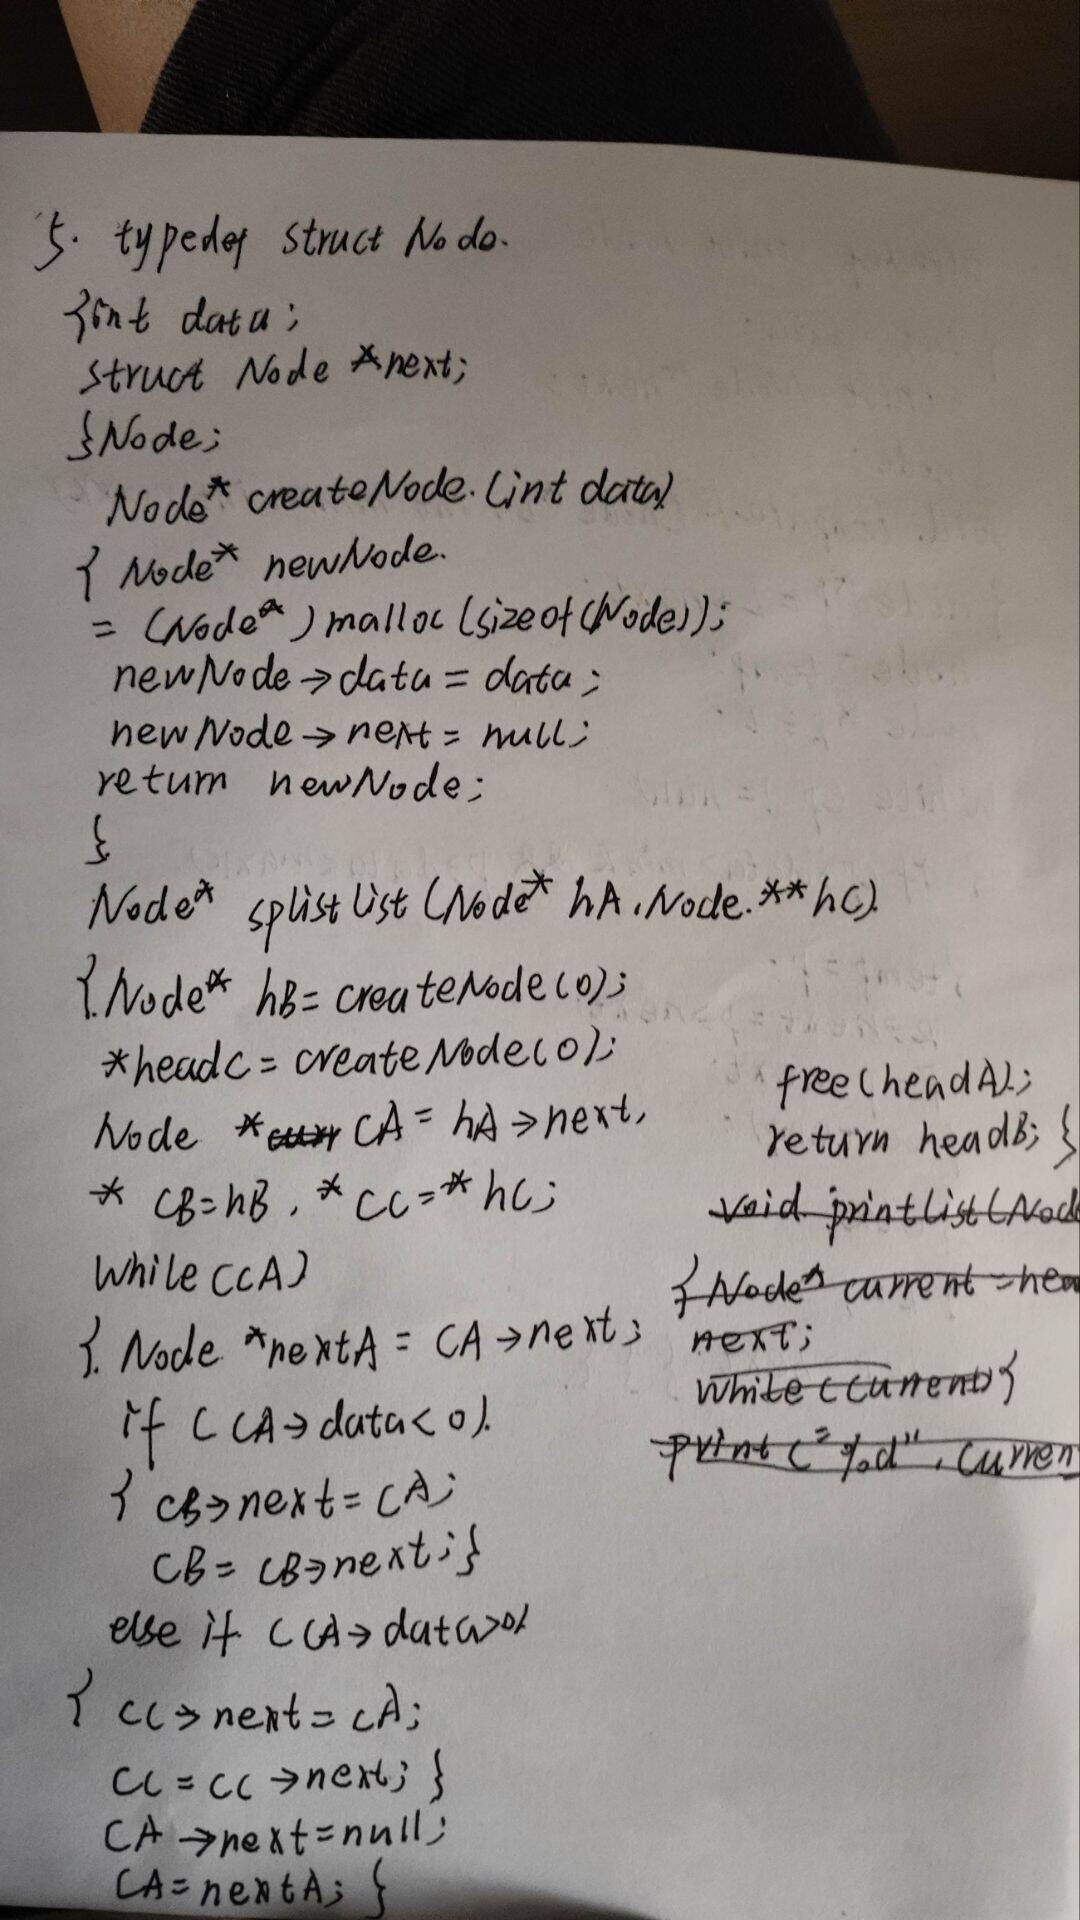 5. typedef struct Node.
{int data;
struct Node *next;
}Node;
Node* createNode.(int data)
{ Node* newNode.
= (Node*) malloc(sizeof(Node));
newNode->data = data;
newNode->next = null;
return newNode;
}
Node* splistlist(Node* hA, Node.**hC).
{.Node* hB = createNode(0);
*headC = createNode(0);
Node *curr CA = hA->next,
* CB=hB, * CC=* hC;
While(CA)
{. Node *nextA = CA->next;
if (CA->data<0).
{ CB->next = CA;
CB = CB->next;}
else if (CA->data>0)
{ CC->next = CA;
CC = CC->next; }
CA->next=null;
CA=nextA; }
free(headA).;
return headB; }
void printlist(Node
{Node* current = hea
next;
While(current){
print("%d", curren